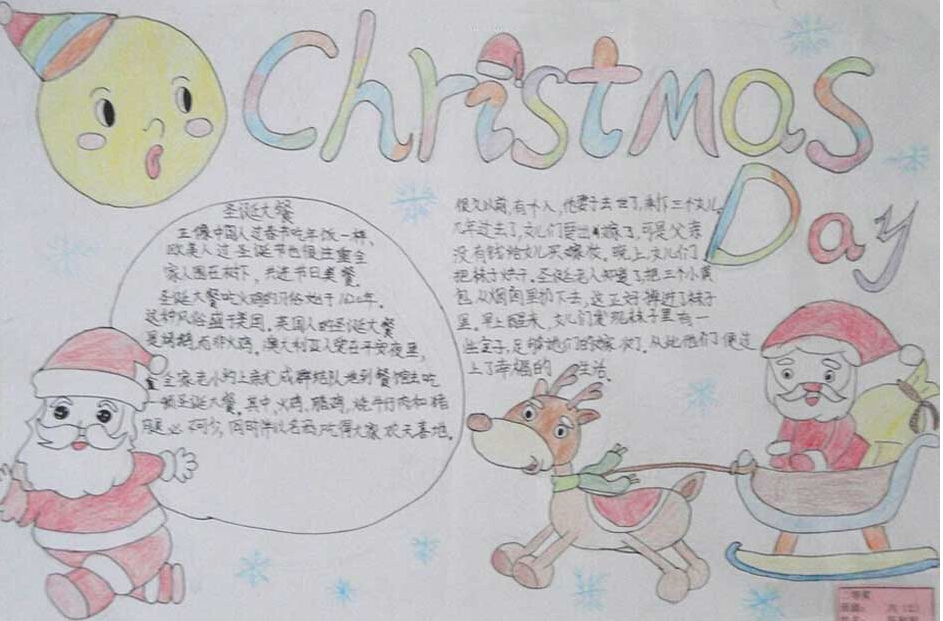 Christmas
Day
圣诞大餐
正像中国人过春节吃年饭一样、
欧美人过圣诞节也很注重全
家人围在树下，共进节日美餐。
圣诞大餐吃火鸡的习俗始于1620年。
这种风俗盛于美国。英国人的圣诞大餐
是烤鹅，而非火鸡。澳大利亚人爱在平安夜里，
全家老小约上亲友成群结队地到餐馆去吃
一顿圣诞大餐。其中，火鸡、腊鸡、烧牛仔肉和猪
腿必不可少，同时伴以名酒，吃得大家欢天喜地。
很久以前，有个人，他妻子去世了，剩下三个女儿。
几年过去了，女儿们要出嫁了，可是父亲
没有钱给女儿买嫁妆。晚上，女儿们
把袜子烘干。圣诞老人知道了，把三个小黄
包从烟囱里扔下去，这正好掉进了袜子
里。早上醒来，女儿们发现袜子里有一
些金子，足够她们的嫁妆了。从此他们便过
上了幸福的 生活。
二等奖
班级： 六（2）